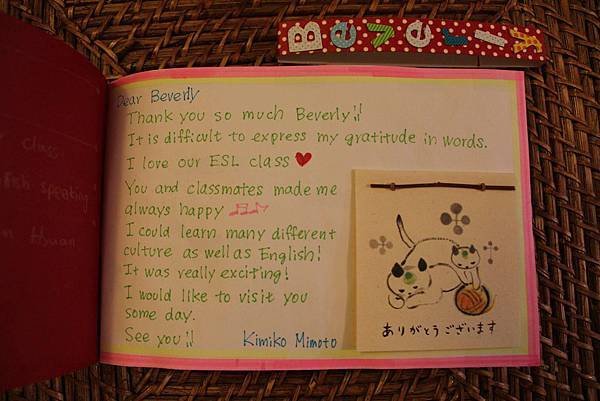 Beverly
class.
speaking
Hsuan
Dear Beverly
Thank you so much Beverly!!
It is difficult to express my gratitude in words.
I love our ESL class ♥
You and classmates made me
always happy ♫♪
I could learn many different
culture as well as English!
It was really exciting!
I would like to visit you
some day.
See you!!
Kimiko Mimoto
ありがとうございます